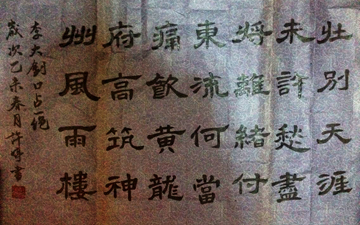 壮別天涯
未許愁盡
將離緒付
東流何當
痛飲黄龍
府高筑神
州風雨樓
李大釗口占絕
歲次乙未春月許